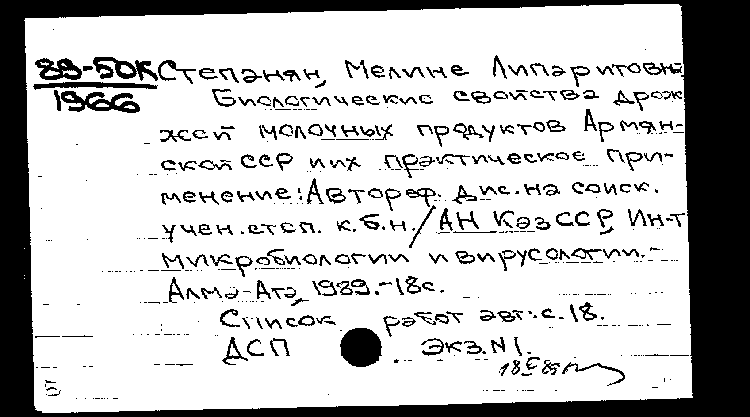 89-50К Степанян, Мелине Липаритовна
1966
Биологические свойства дрож
жей молочных продуктов Армян-
ской ССР и их практическое при-
менение: Автореф. дис. на соиск.
учен. степ. к.б.н. / АН КазССР, Ин-т
микробиологии и вирусологии.-
Алма-Ата, 1989.-18с.
Список работ авт.: с.18.
ДСП . Экз.N1.